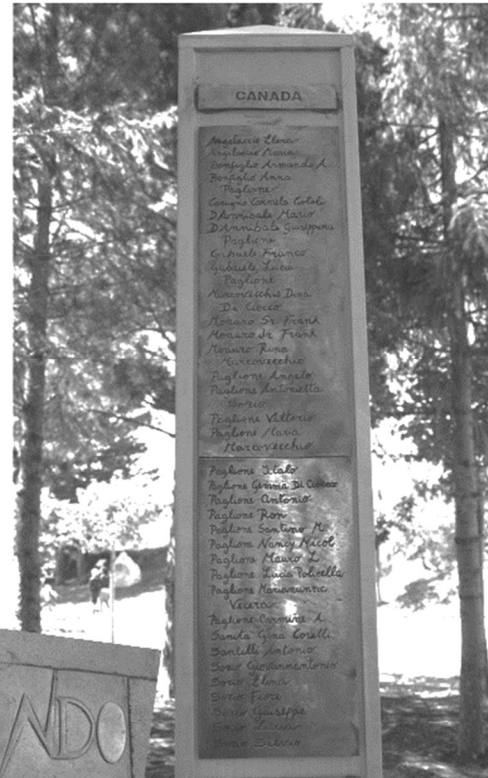 CANADA
Angelaccio Elena
Maria
Bonfiglio Armando A.
Bonfiglio Anna
Paglione
Carugno Carmela Cotoli
D'Annibale Mario
D'Annibale Giuseppina
Paglione
Gabriele Franco
Gabriele Lucia
Paglione
Marcovecchio Dina
Di Ciocco
Monaro Sr. Frank
Monaro Jr. Frank
Monaro Rina
Marcovecchio
Paglione Angelo
Paglione Antonietta
Sozio
Paglione Vittorio
Paglione Maria
Marcovecchio
Paglione Italo
Paglione Gemma Di Ciocco
Paglione Antonio
Paglione Ron
Paglione Santino M.
Paglione Nancy Nicol
Paglione Mauro L.
Paglione Lucia Policella
Paglione Mariannina
Vecera
Paglione Carmine A.
Sanita Gina Coretti
Santilli Antonio
Sozio Giovannantonio
Sozio Elena
Sozio Fiore
Sozio Giuseppe
Sozio Lucia
Sozio Silvio
NDO